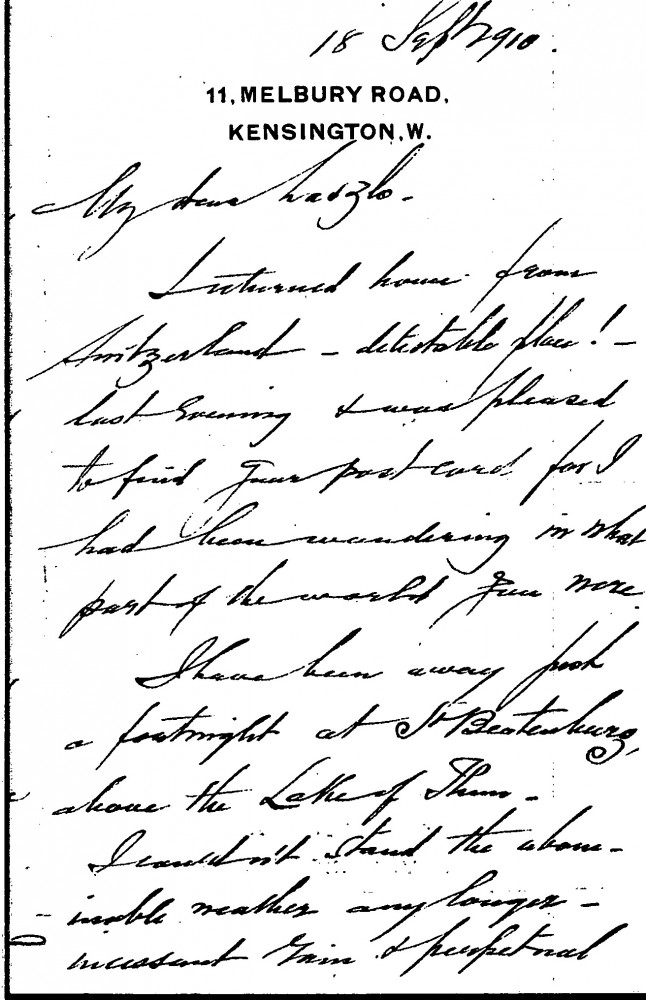 18 Sept 1910.
11, MELBURY ROAD,
KENSINGTON, W.
My dear Laszlo -
I returned home from
Switzerland - detestable place! -
last evening & was pleased
to find your post card for I
had been wondering in what
part of the world you were.
I have been away just
a fortnight at St Beatenburg,
above the Lake of Thun -
I couldn't stand the abom-
inable weather any longer -
incessant rain & perpetual